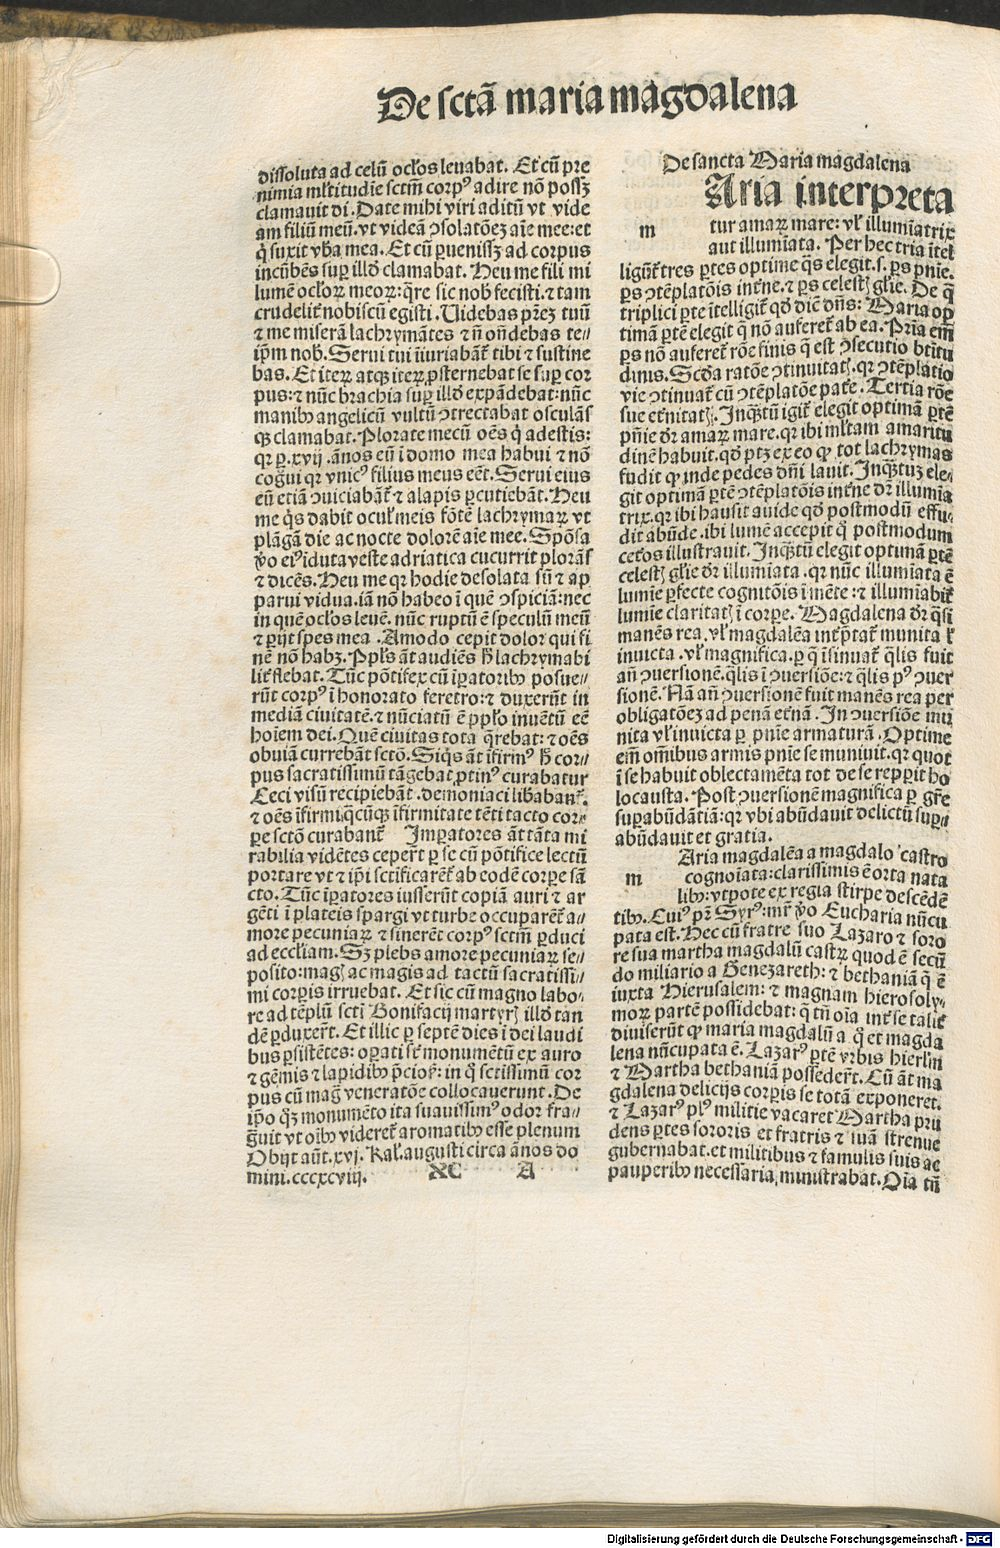 De sctã maria magdalena
dissoluta ad celũ oclos leuabat. Et cũ pre
nimia mltitudie sctm̃ corpꝰ adire nõ possꝫ
clamauit di. Date mihi viri aditũ vt vide
am filiũ meũ. vt videã ↄsolatõeꝫ aĩe mee: et
q̇ suxit vba mea. Et cũ ꝑuenissꝫ ad corpus
incũbẽs suꝑ illđ clamabat. Heu me fili mi
lumẽ oclorꝝ meorꝝ: q̃re sic nob fecisti. ⁊ tam
crudelit̃ nobiscũ egisti. Uidebas pr̃eꝫ tuũ
⁊ me miserã lachrymãtes ⁊ ñ oñdebas te⸗
ip̃m nob. Serui tui iiuriabãt̃ tibi ⁊ sustine
bas. Et iterꝝ atqꝫ iterꝝ ꝓsternebat se suꝑ cor
pus: ⁊ nũc brachia suꝑ illđ expãdebat: nũc
manibꝰ angelicũ vultũ ↄtrectabat osculãs
qꝫ clamabat. Plorate mecũ oẽs q̇ adestis:
qꝛ ꝑ. xvij. ãnos eũ i domo mea habui ⁊ nõ
cogui qꝛ vnicꝰ filius meus eẽt. Serui eius
eũ etiã ↄuiciabãt̃ ⁊ alapis ꝑcutiebãt. Heu
me q̇s dabit ocul meis fõtẽ lachrymarꝝ vt
plãgã die ac nocte dolorẽ aĩe mee. Spõsa
ꝟo eiꝰ iduta veste adriatica cucurrit plorãs
⁊ dicẽs. Heu me qꝛ hodie desolata sũ ⁊ ap
parui vidua. iã nõ habeo ĩ quẽ ↄspiciã: nec
in quẽ oclos leuẽ. nũc ruptũ ẽ speculũ meũ
⁊ ꝑijt spes mea. Amodo cepit dolor qui fi
nẽ nõ habꝫ. Ppls ãt audiẽs h lachrymabi
lit̃ flebat. Tũc põtifex cũ iꝑatoribꝰ posue⸗
rũt corpꝰ i honorato feretro: ⁊ duxerũt in
mediã ciuitatẽ. ⁊ nũciatũ ẽ pplo inuẽtũ eẽ
hoĩem dei. Quẽ ciuitas tota q̃rebat: ⁊ oẽs
obuiã currebãt sctõ. Siq̇s ãt ifirmꝰ h cor⸗
pus sacratissimũ tãgebat ꝓtinꝰ curabatur
Ceci visũ recipiebãt. demoniaci libabant̃.
⁊ oẽs ifirmi q̃cũqꝫ ifirmitate tẽti tacto cor⸗
pe sctõ curabant̃ Imꝑatores ãt tãta mi
rabilia vidẽtes ceper̃t ꝑ se cũ põtifice lectũ
portare vt ⁊ ip̃i sctificarẽt̃ ab eodẽ corpe sã
cto. Tũc iꝑatores iusserũt copiã auri ⁊ ar
gẽti ĩ plateis spargi vt turbe occuparẽt̃ a⸗
more pecuniarꝝ ⁊ sinerẽt corpꝰ sctm̃ ꝑduci
ad eccliam. Sꝫ plebs amore pecuniarꝝ se⸗
posito: magꝭ ac magis ad tactũ sacratissi⸗
mi corꝑis irruebat. Et sic cũ magno labo⸗
re ad tẽplũ scti Bonifacij martyrꝭ illđ tan
dẽ ꝑduxer̃t. Et illic ꝑ septẽ dies i dei laudi
bus ꝑsistẽtes: oꝑati st̃ monumẽtũ ex auro
⁊ gẽmis ⁊ lapidibꝰ p̃cior̃: in q̇ sctissimũ cor
pus cũ mag̃ veneratõe collocauerunt. De
ip̃o q̇ꝫ monumẽto ita suauissimꝰ odor fra⸗
g̃uit vt oĩbꝰ videret̃ aromatibꝰ esse plenum
Obijt aũt. xvj. kal. augusti circa ãnos do
mini. cccxcviij.
XC A
De sancta Maria magdalena
m
Aria interpreta
tur amarꝝ mare: vl illumĩatrix
aut illumĩata. Per hec tria ĩtel
ligũt̃ tres ꝑtes optime q̃s elegit. s. ꝑs pñie.
ꝑs ↄtẽplatõis int̃ne. ⁊ ꝑs celestꝭ gl̃ie. De q̃
triplici ꝑte ĩtelligit̃ qđ dic̃ dñs: Maria op
timã ꝑtẽ elegit q̃ nõ auferet̃ ab ea. Pria em̃
ꝑs nõ auferet̃ rõe finis q̃ est ↄsecutio bt̃itu
dinis. Scđa ratõe ↄtinuitatꝭ. qꝛ ↄtẽplatio
vie ↄtinuat̃ cũ ↄtẽplatõe pat̃e. Tertia rõe
sue et̃nitatꝭ. Inq̃tũ igit̃ elegit optimã ꝑtẽ
pñie dr̃ amarꝝ mare. qꝛ ibi mltam amaritu
dinẽ habuit. qđ ptꝫ ex eo ꝙ tot lachrymas
fudit ꝙ inde pedes dñi lauit. Inq̃tuꝫ ele⸗
git optimã ꝑtẽ ↄtẽplatõis int̃ne dr̃ illumĩa
trix. qꝛ ibi hausit auide qđ postmodũ effu⸗
dit abũde. ibi lumẽ accepit q̇ postmodum
cet̃os illustrauit. Inq̃tũ elegit optimã ꝑtẽ
celestꝭ gl̃ie dr̃ illumĩata. qꝛ nũc illumĩata ẽ
lumĩe ꝑfecte cognitõis ĩ mẽte: ⁊ illumĩabit̃
lumĩe claritatꝭ ĩ corpe. Magdalena dr̃ q̃si
manẽs rea. vl magdalẽa int̃ptat̃ munita vl
inuicta. vl magnifica. ꝑ q̃ ĩsinuat̃ q̃lis fuit
añ ↄuersionẽ. q̃lis ĩ ↄuersiõe: ⁊ q̃lis pꝰ ↄuer
sionẽ. Nã añ ↄuersionẽ fuit manẽs rea per
obligatõeꝫ ad penã et̃nã. In ↄuersiõe mu
nita vl inuicta ꝑ pñie armaturã. Optime
em̃ om̃ibus armis pñie se muniuit. qꝛ quot
ĩ se habuit oblectamẽta tot de se repꝑit ho
locausta. Post ↄuersionẽ magnifica ꝑ gr̃e
suꝑabũdãtiã: qꝛ vbi abũdauit delictũ suꝑ⸗
abũdauit et gratia.
m
Aria magdalẽa a magdalo castro
cognoĩata: clarissimis ẽ orta nata
libꝰ: vtpote ex regia stirpe descẽdẽ
tibꝰ. Cuiꝰ pr̃ Syrꝰ: mr̃ ꝟo Eucharia nũcu
pata est. Hec cũ fratre suo Lazaro ⁊ soro
re sua martha magdalũ castrꝝ quod ẽ secũ
do miliario a Genezareth: ⁊ bethaniã q̃ ẽ
iuxta Hierusalem: ⁊ magnam hierosoly⸗
morꝝ partẽ possidebat: q̃ tñ oĩa int̃ se talit̃
diuiserũt ꝙ maria magdalũ a q̇ et magda
lena nũcupata ẽ. Lazarꝰ ꝑtẽ vrbis hierlm̃
⁊ Martha bethaniã posseder̃t. Cũ ãt ma
gdalena delicijs corꝑis se totã exponeret.
⁊ Lazarꝰ plꝰ militie vacaret Martha pru
dens ꝑtes sororis et fratris ⁊ suã strenue
gubernabat. et militibus ⁊ famulis suis ac
pauperibꝰ necess̃aria ministrabat. Oĩa tñ
Digitalisierung gefördert durch die Deutsche Forschungsgemeinschaft - DFG